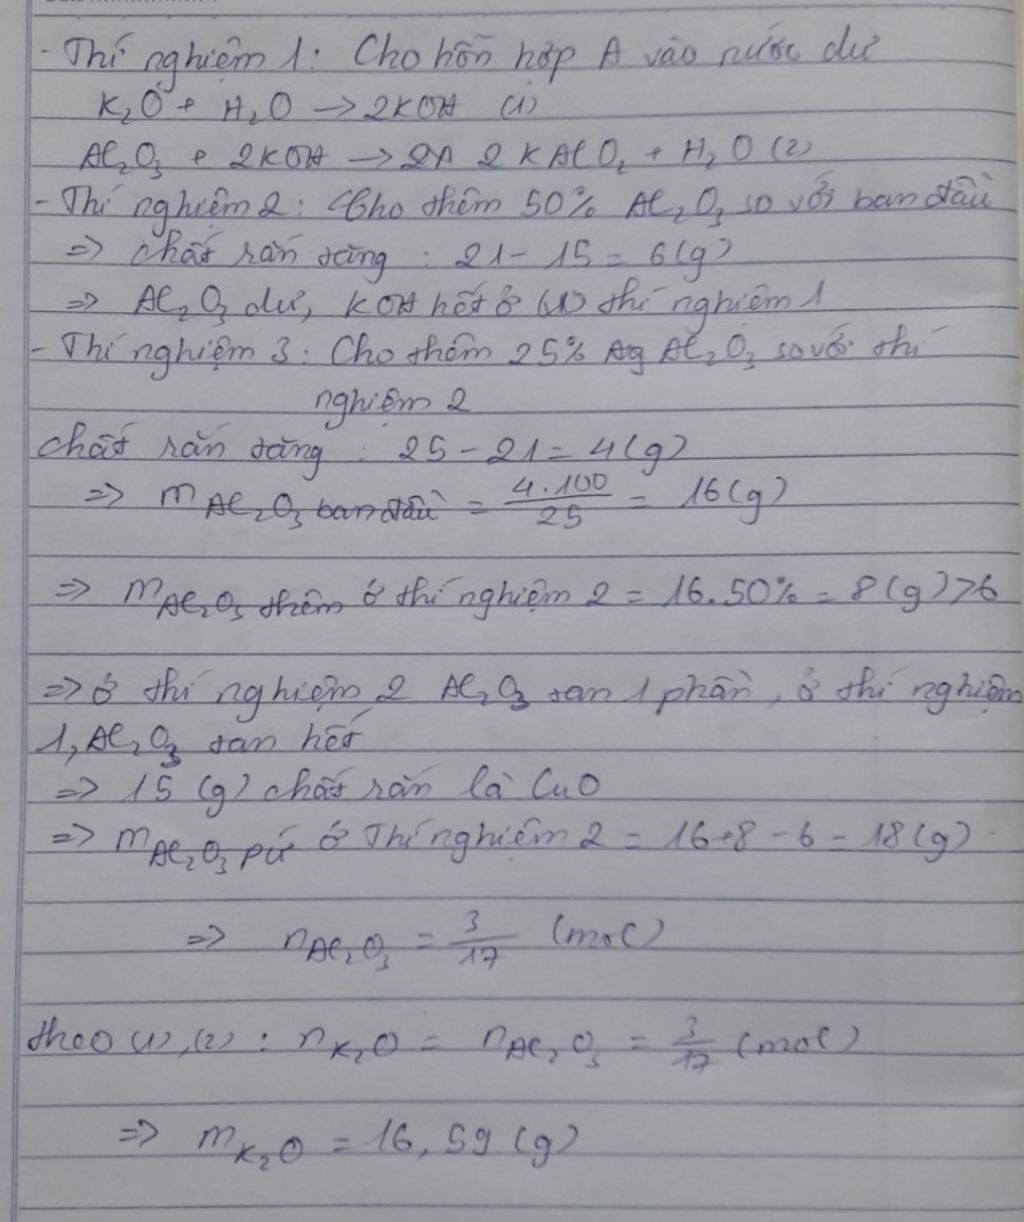 - Thí nghiệm 1: Cho hỗn hợp A vào nước dư
K₂O + H₂O → 2KOH (1)
Al₂O₃ + 2KOH → 2 KAlO₂ + H₂O (2)
- Thí nghiệm 2: Cho thêm 50% Al₂O₃ so với ban đầu
=> chất rắn tăng : 21 - 15 = 6(g)
=> Al₂O₃ dư, KOH hết ở (1) thí nghiệm 1
- Thí nghiệm 3: Cho thêm 25% Al₂O₃ so với thí
nghiệm 2
chất rắn tăng : 25 - 21 = 4(g)
=> m Al₂O₃ ban đầu = 4.100/25 = 16(g)
=> m Al₂O₃ thêm ở thí nghiệm 2 = 16.50% = 8(g)>6
=> ở thí nghiệm 2 Al₂O₃ tan 1 phần, ở thí nghiệm
1, Al₂O₃ tan hết
=> 15 (g) chất rắn là CuO
=> m Al₂O₃ pứ ở Thí nghiệm 2 = 16+8 - 6 = 18(g)
=> n Al₂O₃ = 3/17 (mol)
theo (1), (2) : n K₂O = n Al₂O₃ = 3/17 (mol)
=> m K₂O = 16,59 (g)